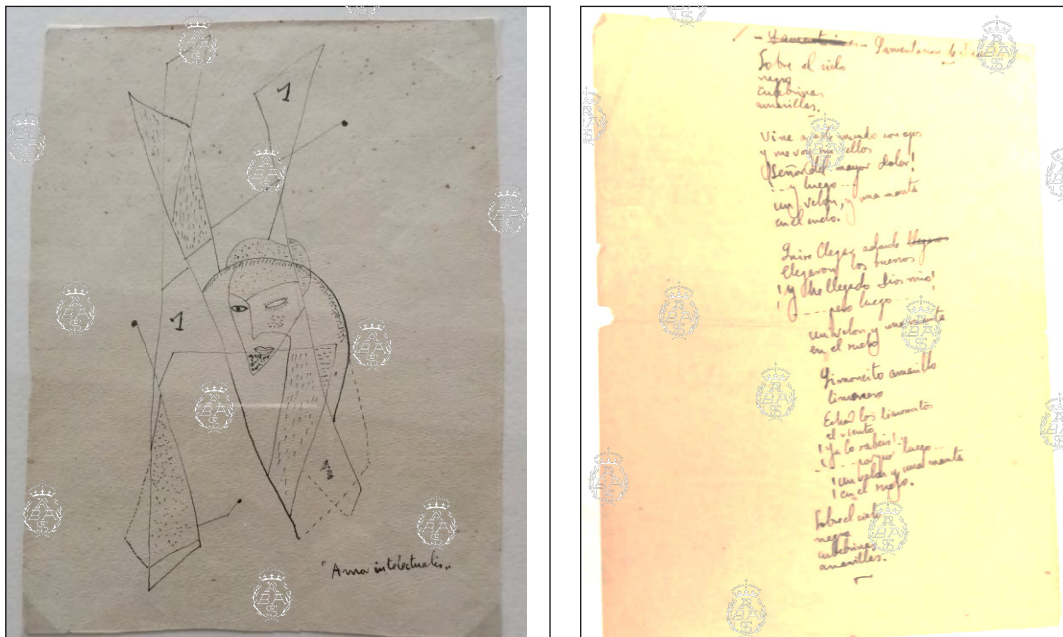 1
1
1
"Amor intelectualis"
- Lamentacion
Sobre el cielo
negro
culebrinas
amarillas.
Vine a este mundo con ojos
y me voy sin ellos
¡Señor del mayor dolor!
...y luego...
un velon, y una manta
en el suelo.
Quise llegar adonde llegaron
llegaron los buenos
¡y he llegado Dios mio!
...pero luego...
un velon y una manta
en el suelo
Limoncito amarillo
limonero
Echad los limoncitos
al viento
¡Ya lo sabeis!
...porque luego...
¡un velon y una manta
¡en el suelo.
Sobre el cielo
negro
culebrinas
amarillas.